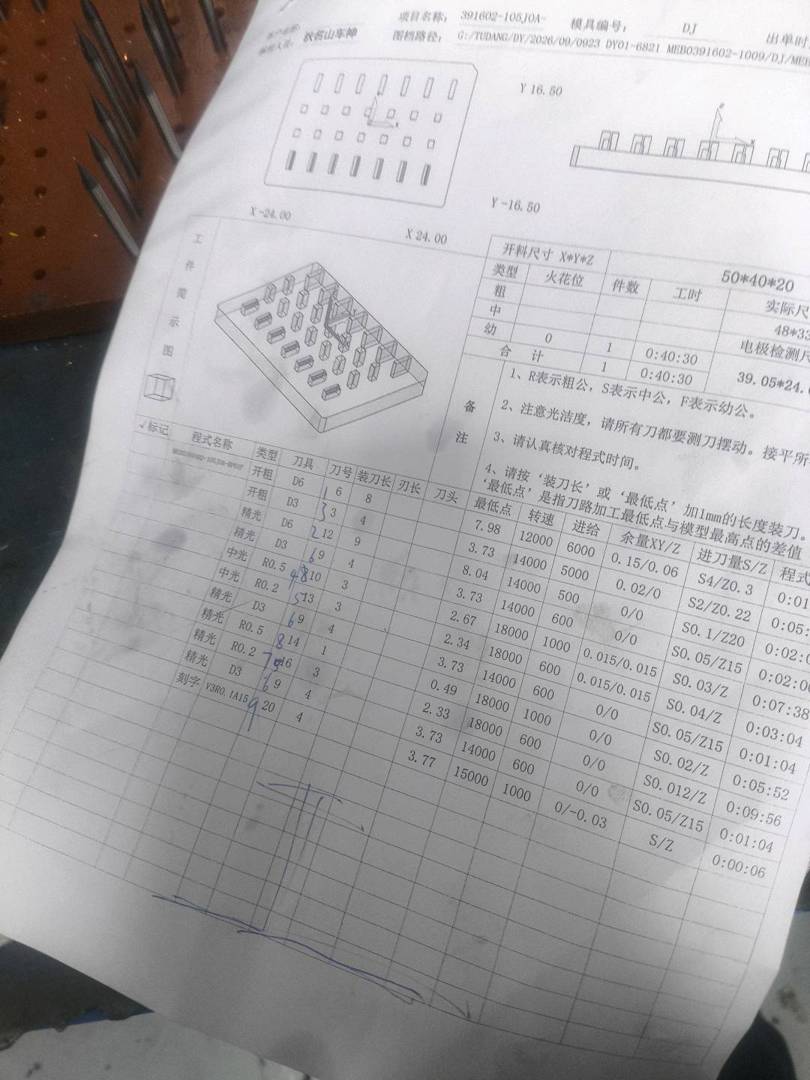 项目名称: 391602-105J0A- 模具编号: DJ 出单时
秋名山车神 图档路径: G:/TUDANG/DY/2026/09/0923 DY01-6821 MEB0391602-1009/DJ/MEB
Y 16.50
Y -16.50
X -24.00
X 24.00
工件简示图
开料尺寸 X*Y*Z 50*40*20
类型 火花位 件数 工时 实际尺
粗 48*33
中 电极检测尺
幼 0 1 0:40:30 39.05*24.
合计 1 0:40:30
备注
1、R表示粗公，S表示中公，F表示幼公。
2、注意光洁度，请所有刀都要测刀摆动。接平所
3、请认真核对程式时间。
4、请按‘装刀长’或‘最低点’加1mm的长度装刀。
‘最低点’是指刀路加工最低点与模型最高点的差值
√标记 程式名称 类型 刀具 刀号 装刀长 刃长 刀头 最低点 转速 进给 余量XY/Z 进刀量S/Z 程式
开粗 D6 1 6 8 7.98 12000 6000 0.15/0.06 S4/Z0.3 0:01
开粗 D3 3 3 4 3.73 14000 5000 0.02/0 S2/Z0.22 0:05:
精光 D6 2 12 9 8.04 14000 500 0/0 S0.1/Z20 0:02:0
精光 D3 6 9 4 3.73 14000 600 0/0 S0.05/Z15 0:02:0
中光 R0.5 4 8 10 3 2.67 18000 1000 0.015/0.015 S0.03/Z 0:07:38
中光 R0.2 5 13 3 2.34 18000 600 0.015/0.015 S0.04/Z 0:03:04
精光 D3 6 9 4 3.73 14000 600 0/0 S0.05/Z15 0:01:04
精光 R0.5 8 14 1 0.49 18000 1000 0/0 S0.02/Z 0:05:52
精光 R0.2 7 16 3 2.33 18000 600 0/0 S0.012/Z 0:09:56
精光 D3 6 9 4 3.73 14000 600 0/0 S0.05/Z15 0:01:04
刻字 V3R0.1A15 9 20 4 3.77 15000 1000 0/-0.03 S/Z 0:00:06